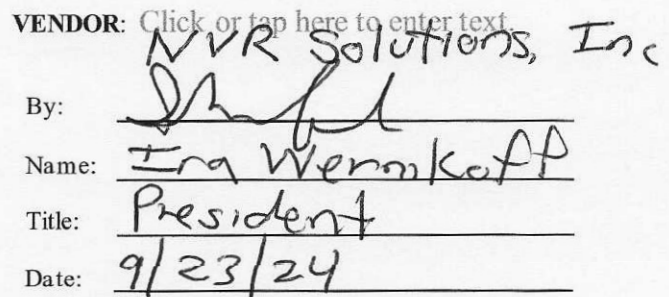 VENDOR: Click or tap here to enter text.
NVR Solutions, Inc
By:
Name: Ira Wernikoff
Title: President
Date: 9/23/24